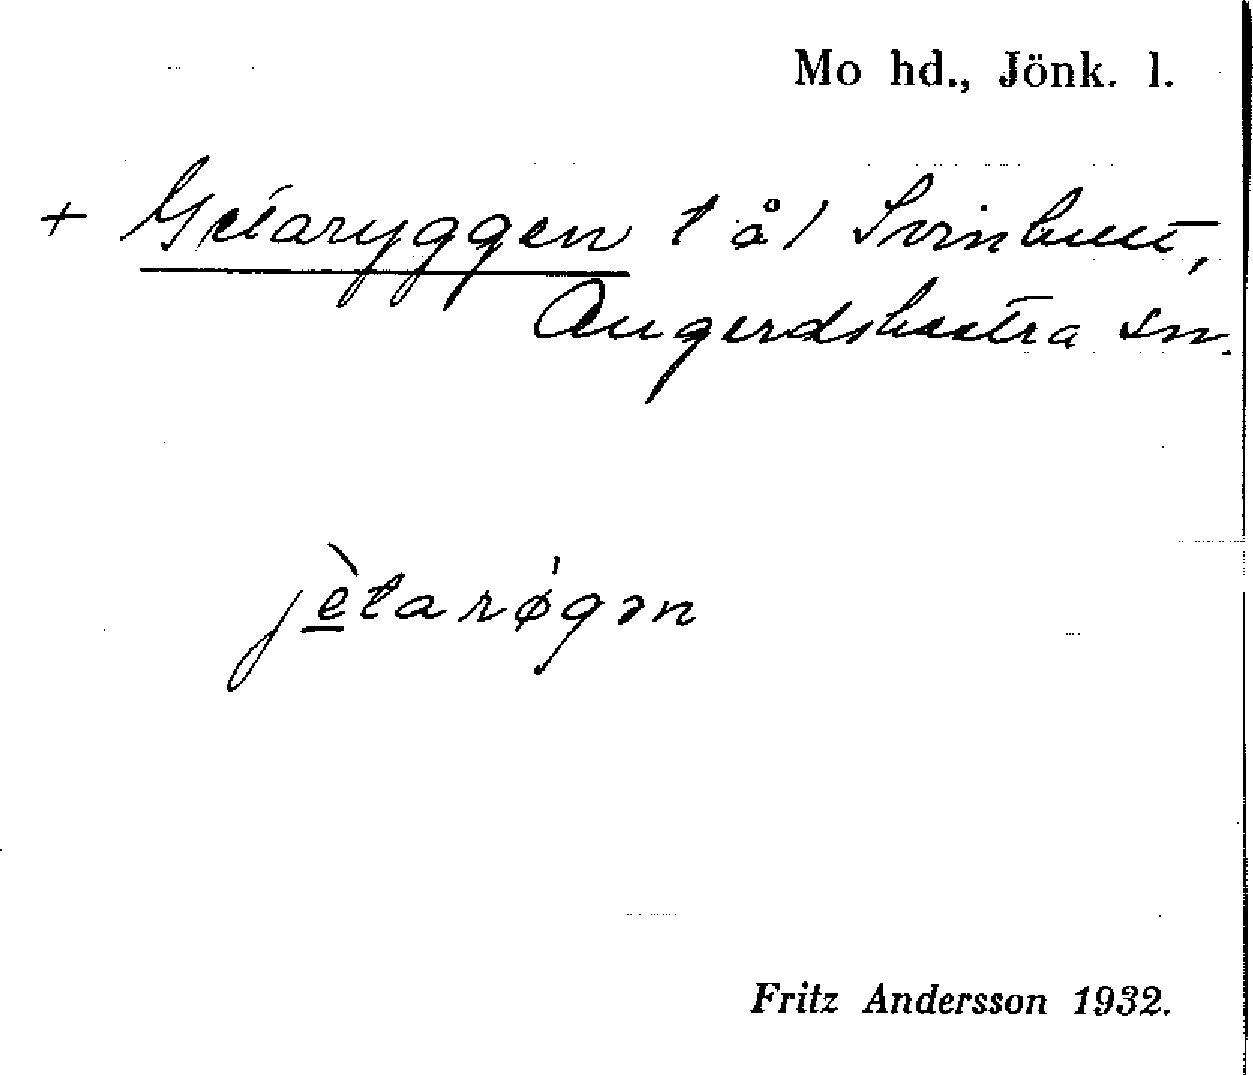 Mo hd., Jönk. l.
+ Getaryggen t å / Svinhult,
Angerdshestra sn.
jètarøgən
Fritz Andersson 1932.